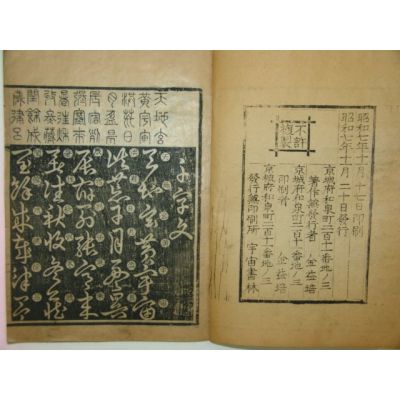 昭和七年十月十七日印刷
昭和七年十月二十日發行
不許
複製
京城府和泉町二百十一番地ノ三
著作兼發行者 金益培
京城府和泉町二百十一番地ノ三
印刷者 金益培
發行兼印刷所 宇宙書林
天地玄
黃宇宙
洪荒日
月盈昃
辰宿列
張寒來
暑往秋
收冬藏
閏餘成
歲律呂
千字文
天地玄黃宇宙
洪荒日月盈昃
辰宿列張寒來
暑往秋收冬藏
閏餘成歲律呂